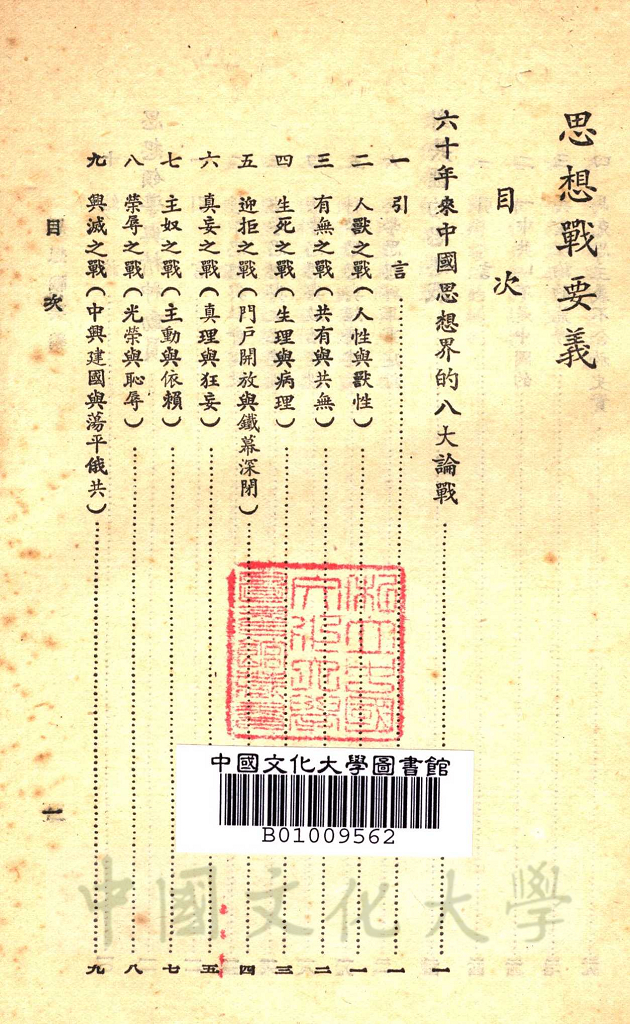 思想戰要義
目次
六十年來中國思想界的八大論戰……一
一 引言……一
二 人獸之戰(人性與獸性)……一
三 有無之戰(共有與共無)……二
四 生死之戰(生理與病理)……三
五 迎拒之戰(門戶開放與鐵幕深閉)……四
六 真妄之戰(真理與狂妄)……五
七 主奴之戰(主動與依賴)……七
八 榮辱之戰(光榮與恥辱)……八
九 興滅之戰(中興建國與蕩平俄共)……九
目次 一
中國文化大學圖書館
B01009562
中國文化大學